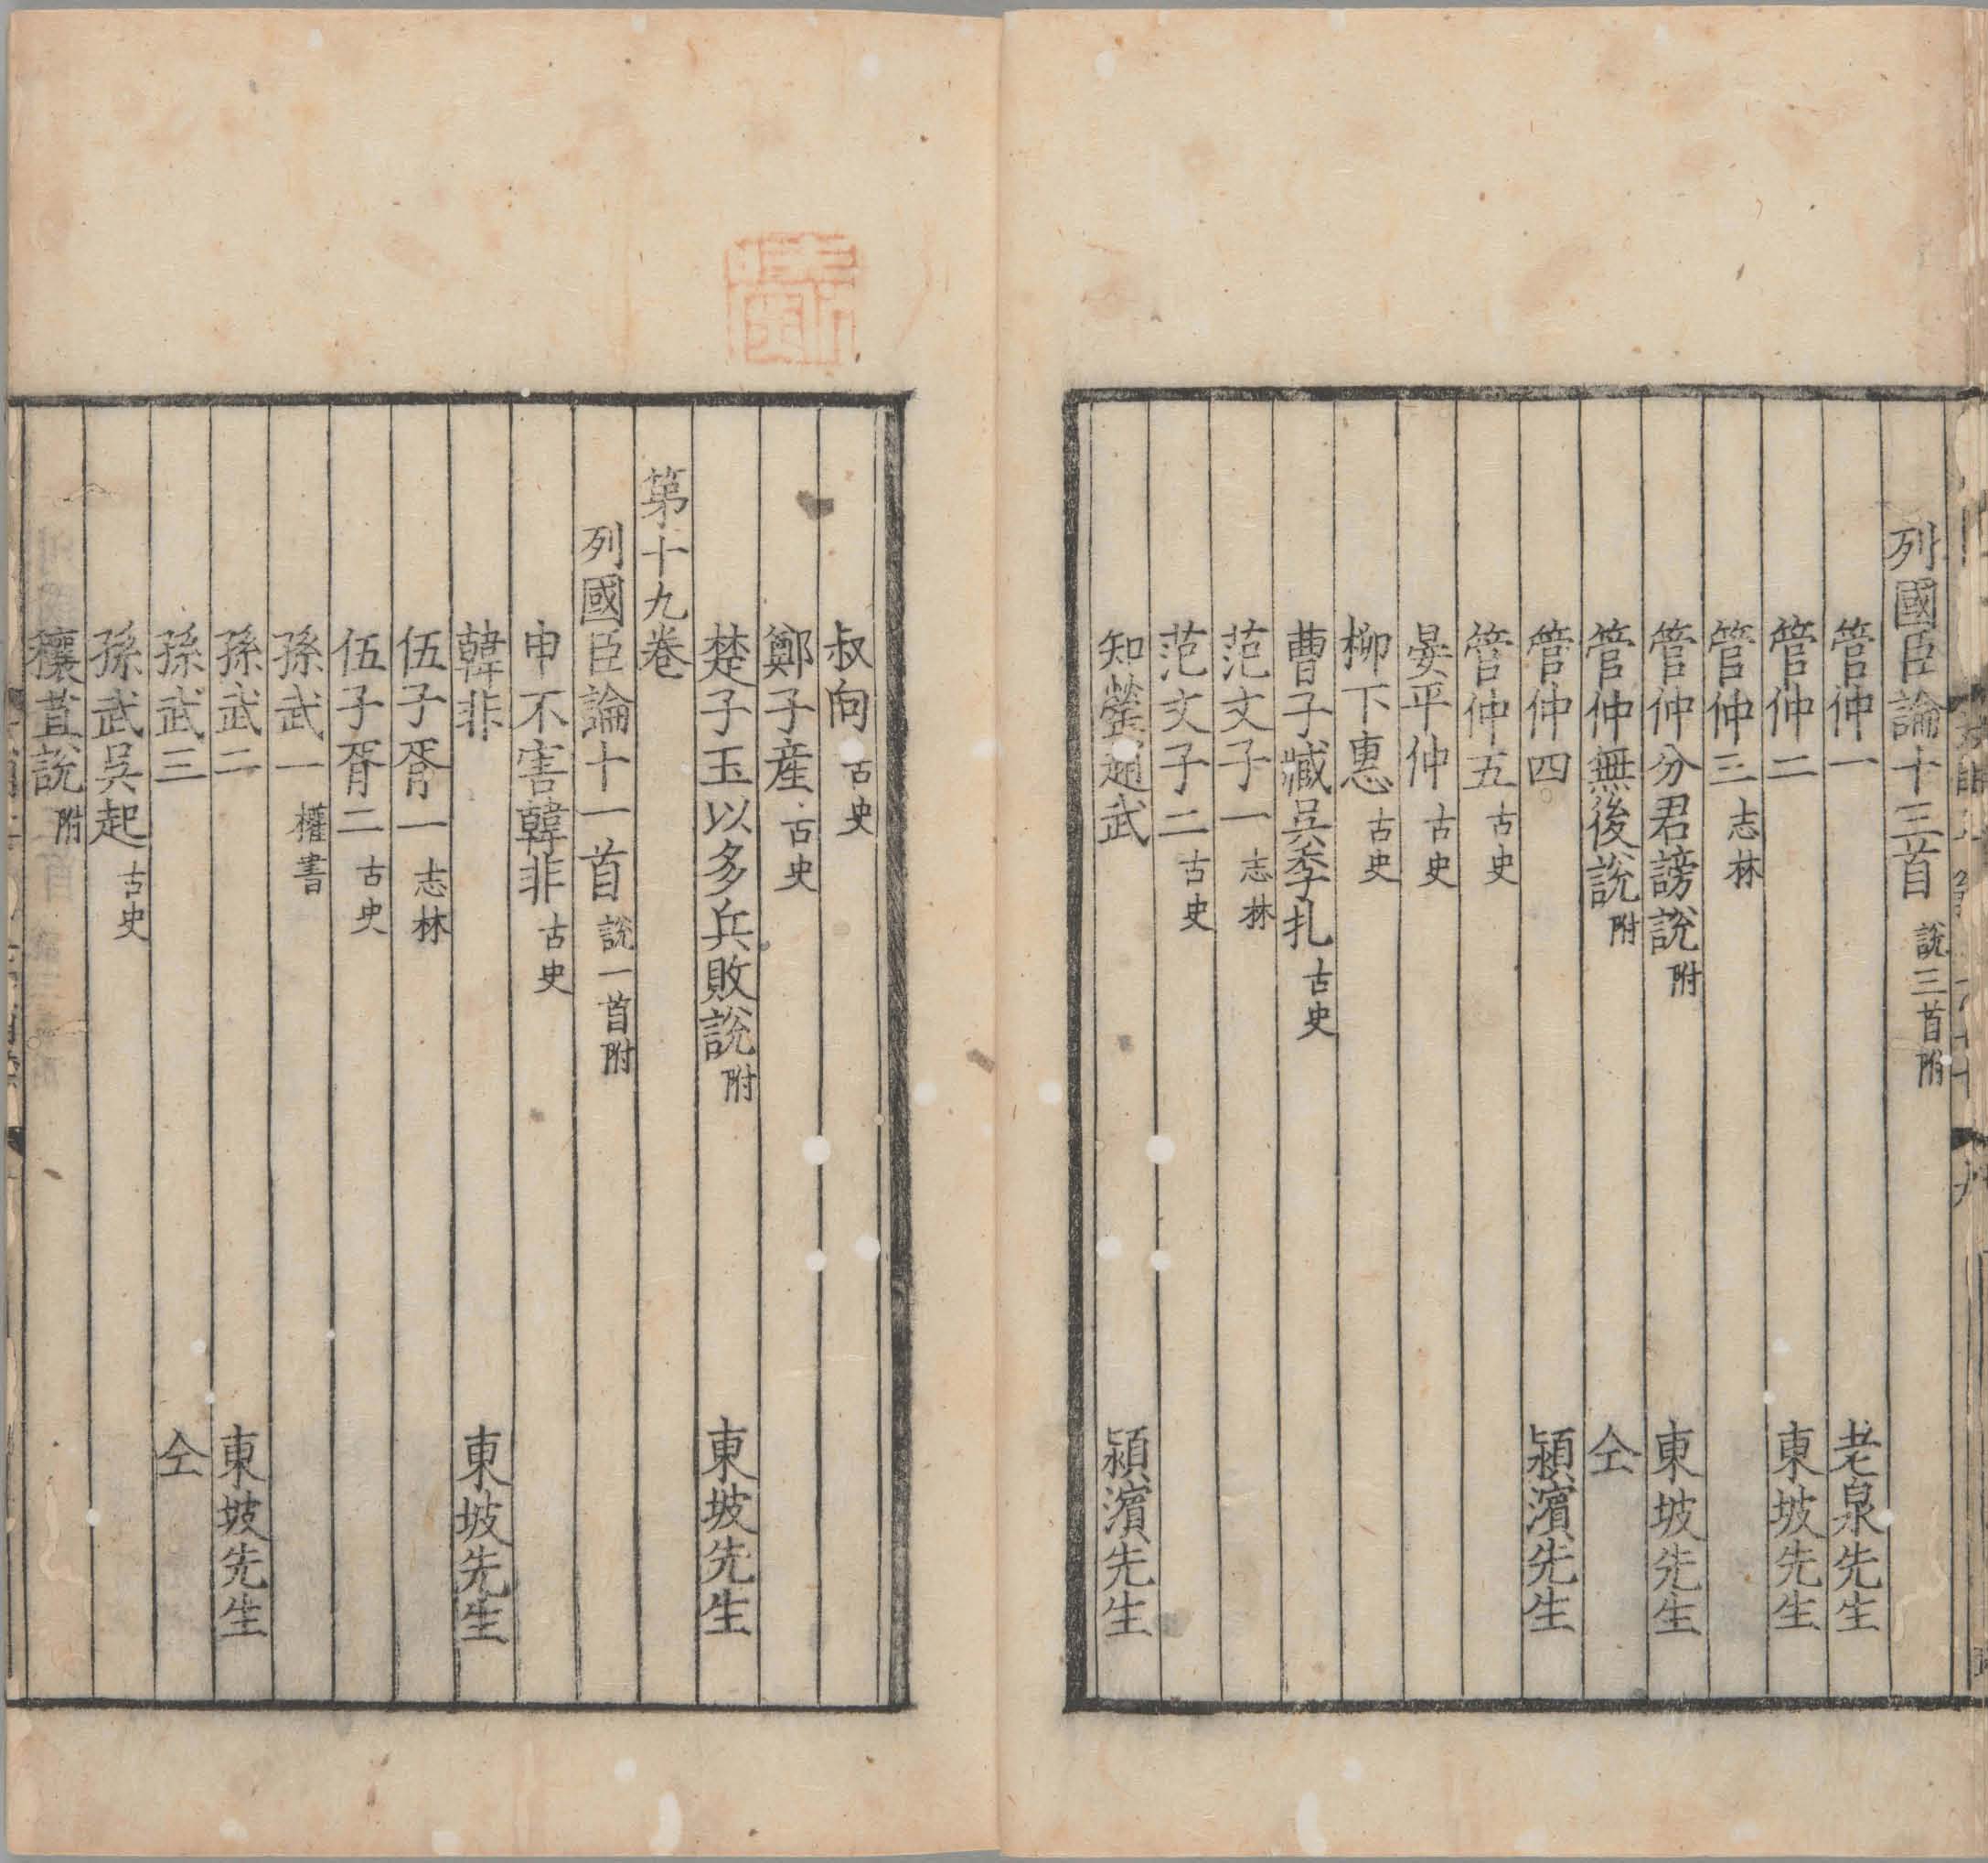 列國臣論十三首 說三首附
管仲一 老泉先生
管仲二 東坡先生
管仲三 志林
管仲分君謗說 附 東坡先生
管仲無後說 附 仝
管仲四 潁濱先生
管仲五 古史
晏平仲 古史
柳下惠 古史
曹子臧吳季札 古史
范文子一 志林
范文子二 古史
知罃趙武 潁濱先生
叔向 古史
鄭子產 古史
楚子玉以多兵敗說 附 東坡先生
第十九卷
列國臣論十一首 說一首附
申不害韓非 古史
韓非 東坡先生
伍子胥一 志林
伍子胥二 古史
孫武一 權書
孫武二 東坡先生
孫武三 仝
孫武吳起 古史
穰苴說 附